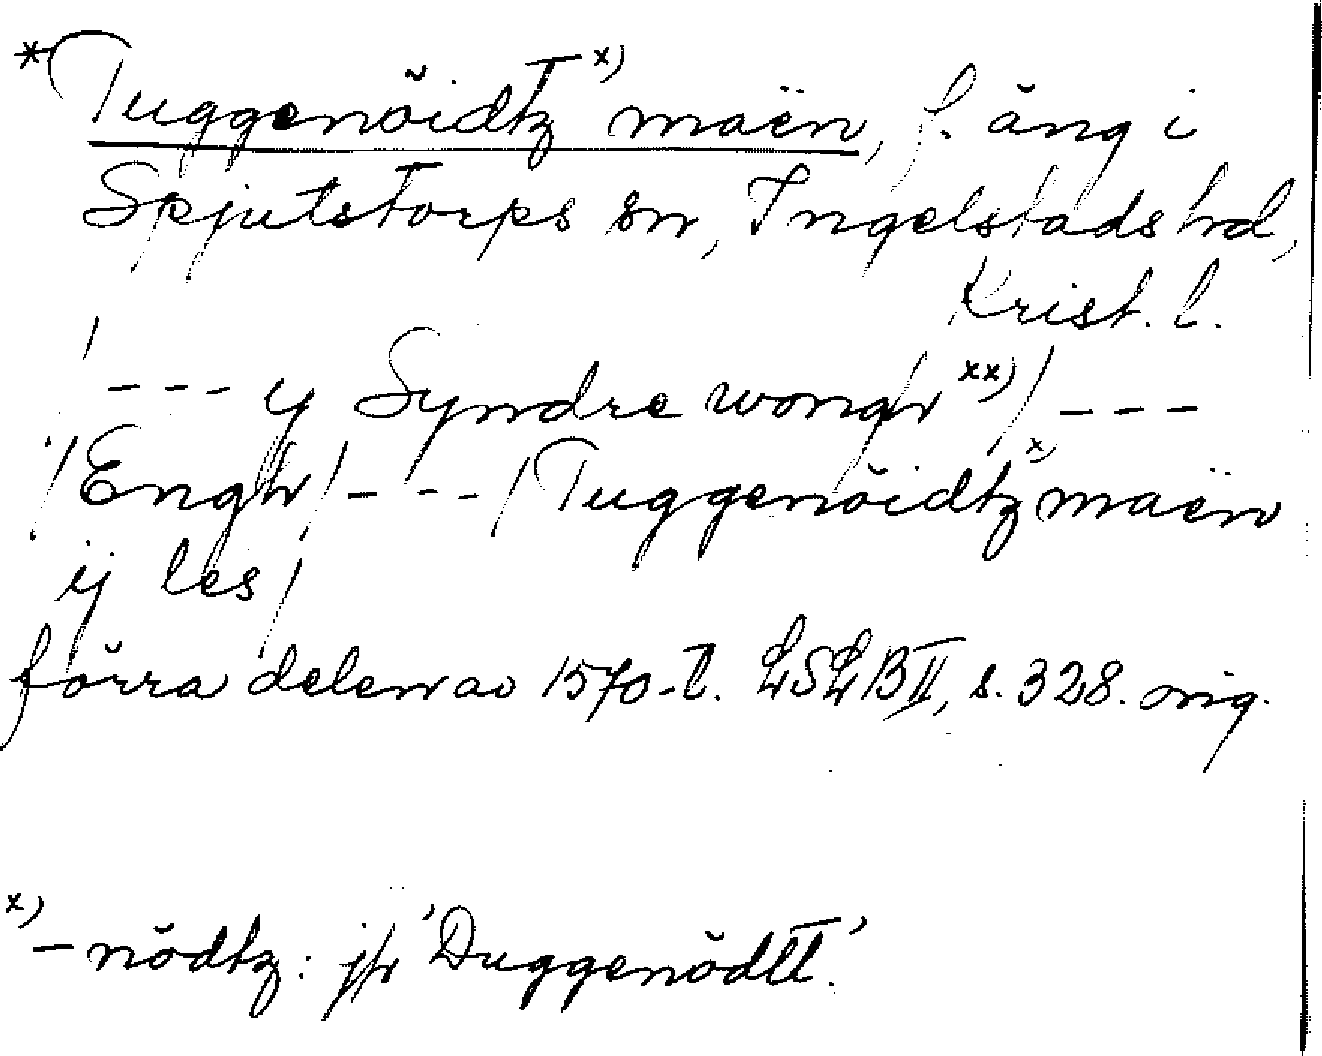 *Tuggenöidtz x) maen, f. äng i
Spjutstorps sn, Ingelstads hd,
Krist. l.
/ - - - y Syndre wongh xx) / - - -
/ Engh / - - - / Tuggenöidtz x) maen
ij les /
förra delen av 1570-t. LSLB II, s. 328. orig.
x) -nödtz: jfr 'Duggenödtt'.